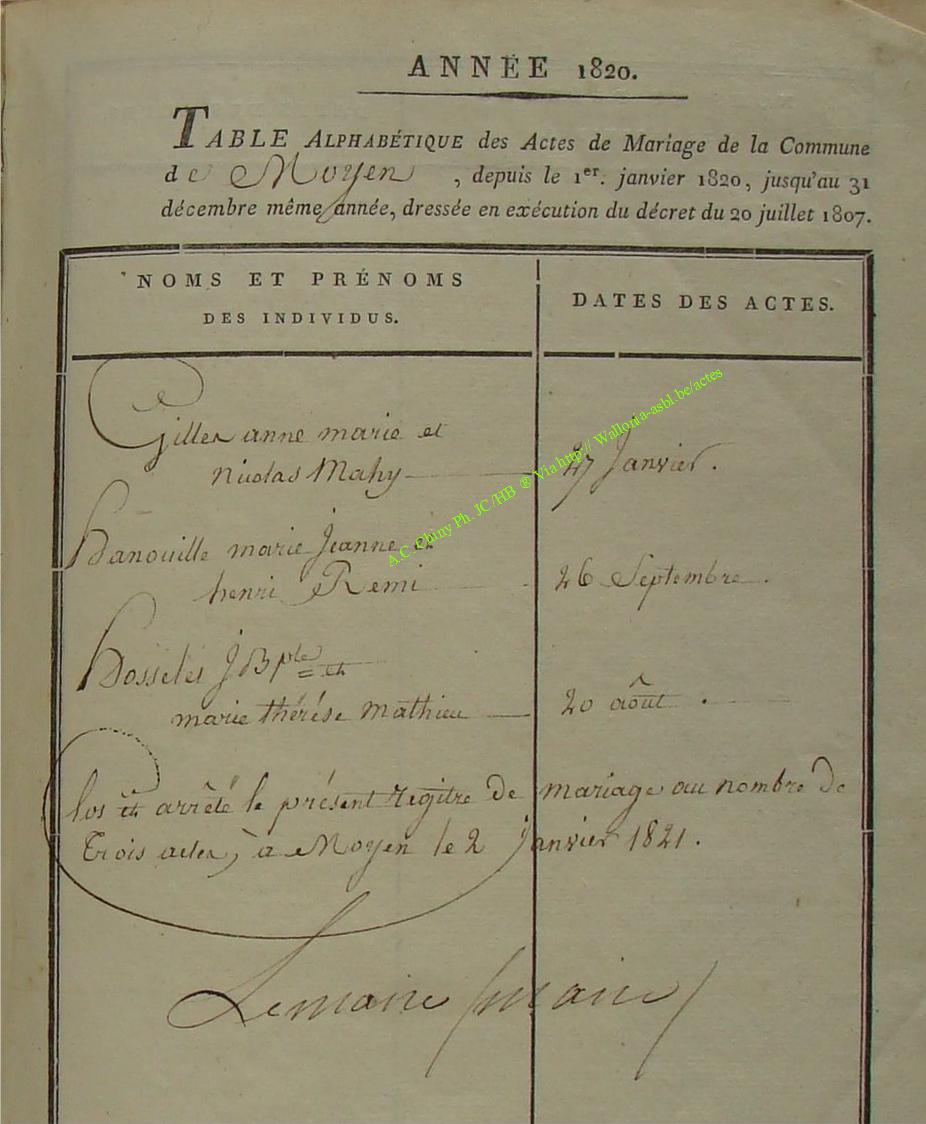 ANNÉE 1820.
TABLE ALPHABÉTIQUE des Actes de Mariage de la Commune
de Moyen, depuis le 1er. janvier 1820, jusqu'au 31
décembre même année, dressée en exécution du décret du 20 juillet 1807.
NOMS ET PRÉNOMS
DES INDIVIDUS.
DATES DES ACTES.
Gilles anne marie et
nicolas Mahy 27 Janvier.
hanouille marie Jeanne et
henri Remi 26 Septembre.
J Bpte et
marie thérése mathieu 20 aôut.
Clos et arrêté le présent regitre de mariage au nombre de
trois actes, à Moyen le 2 Janvier 1821.
Lemaire / maire /
A.C. Chiny Ph. JC/HB ® Via http:// Wallonia-asbl.be/actes